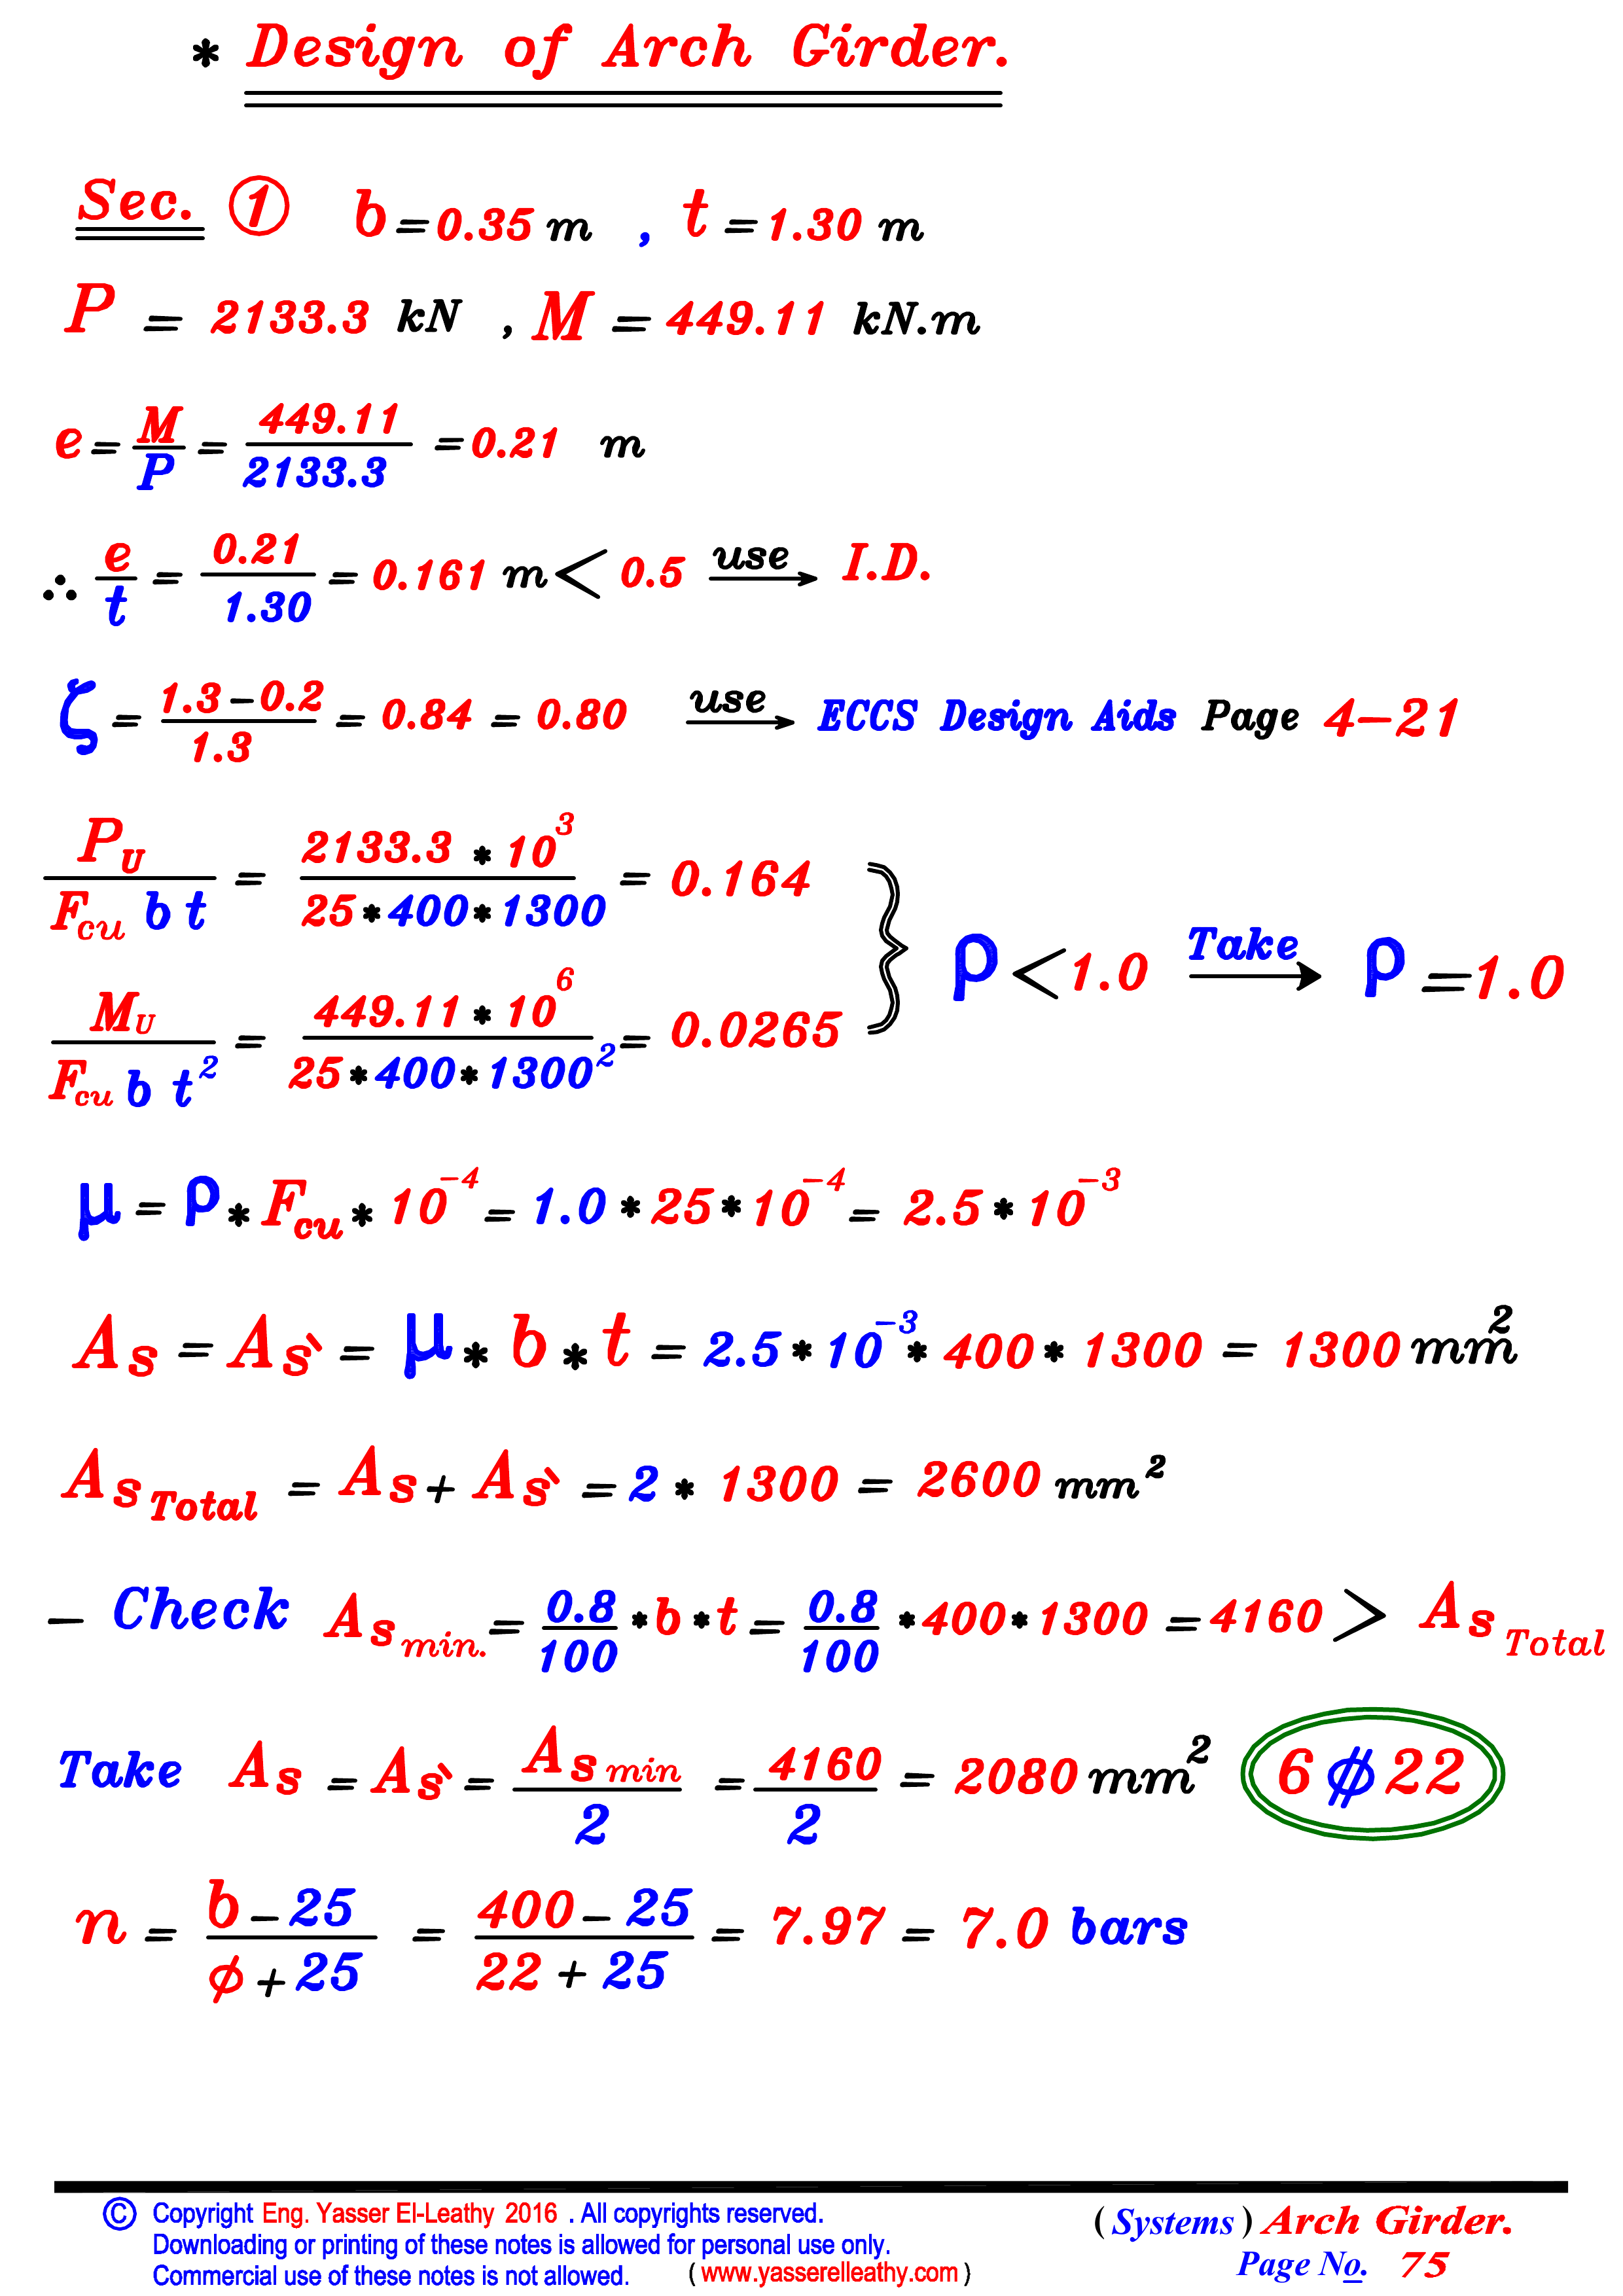 * Design of Arch Girder.
Sec. ① b = 0.35 m , t = 1.30 m
P = 2133.3 kN , M = 449.11 kN.m
e = M/P = 449.11/2133.3 = 0.21 m
∴ e/t = 0.21/1.30 = 0.161 m < 0.5 use→ I.D.
ζ = (1.3 - 0.2)/1.3 = 0.84 = 0.80 use→ ECCS Design Aids Page 4-21
P_U/(F_cu b t) = (2133.3 * 10^3)/(25 * 400 * 1300) = 0.164
M_U/(F_cu b t^2) = (449.11 * 10^6)/(25 * 400 * 1300^2) = 0.0265
} ρ < 1.0 Take→ ρ = 1.0
μ = ρ * F_cu * 10^-4 = 1.0 * 25 * 10^-4 = 2.5 * 10^-3
A_s = A_s` = μ * b * t = 2.5 * 10^-3 * 400 * 1300 = 1300 mm^2
A_s Total = A_s + A_s` = 2 * 1300 = 2600 mm^2
- Check A_s min. = 0.8/100 * b * t = 0.8/100 * 400 * 1300 = 4160 > A_s Total
Take A_s = A_s` = A_s min/2 = 4160/2 = 2080 mm^2 6 ϕ 22
n = (b - 25)/(ϕ + 25) = (400 - 25)/(22 + 25) = 7.97 = 7.0 bars
© Copyright Eng. Yasser El-Leathy 2016 . All copyrights reserved.
Downloading or printing of these notes is allowed for personal use only.
Commercial use of these notes is not allowed. ( www.yasserelleathy.com )
( Systems ) Arch Girder.
Page No. 75